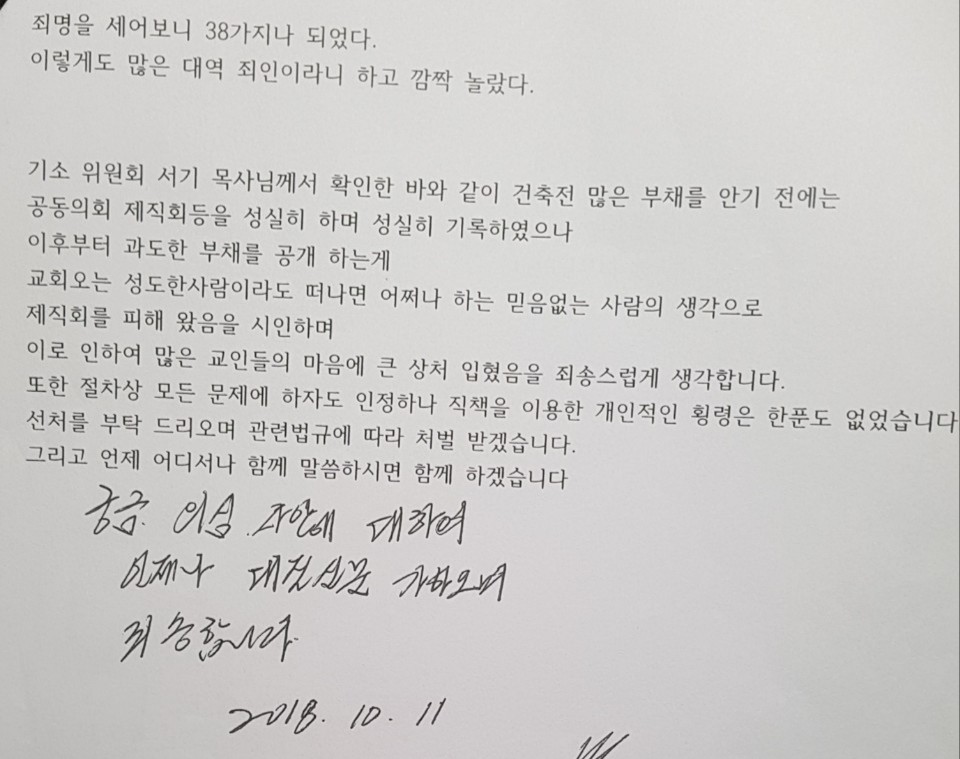 죄명을 세어보니 38가지나 되었다.
이렇게도 많은 대역 죄인이라니 하고 깜짝 놀랐다.
기소 위원회 서기 목사님께서 확인한 바와 같이 건축전 많은 부채를 안기 전에는
공동의회 제직회등을 성실히 하며 성실히 기록하였으나
이후부터 과도한 부채를 공개 하는게
교회오는 성도한사람이라도 떠나면 어쩌나 하는 믿음없는 사람의 생각으로
제직회를 피해 왔음을 시인하며
이로 인하여 많은 교인들의 마음에 큰 상처 입혔음을 죄송스럽게 생각합니다.
또한 절차상 모든 문제에 하자도 인정하나 직책을 이용한 개인적인 횡령은 한푼도 없었습니다
선처를 부탁 드리오며 관련법규에 따라 처벌 받겠습니다.
그리고 언제 어디서나 함께 말씀하시면 함께 하겠습니다
궁금 의심 사안에 대하여
언제나 대질신문 가하오며
죄송합니다.
2018. 10. 11